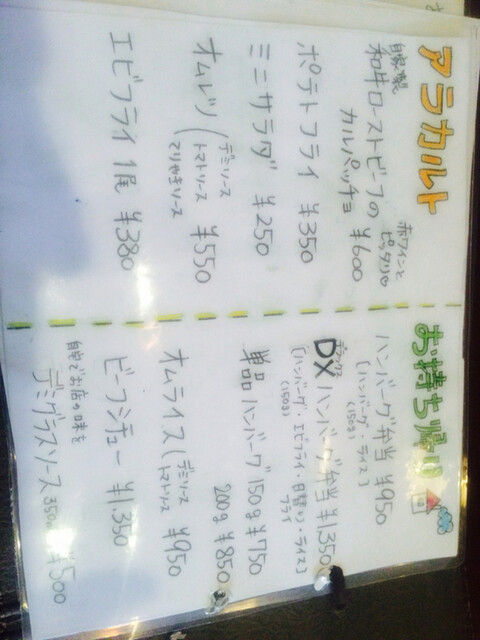 アラカルト
自家製
和牛ローストビーフの
カルパッチョ ¥600
赤ワインと
ピッタリ♡
ポテトフライ ¥350
ミニサラダ ¥250
オムレツ(デミソース
トマトソース
てりやきソース ¥550
エビフライ 1尾 ¥380
お持ち帰り
ハンバーグ弁当 ¥950
[ハンバーグ・ライス]
(150g)
デラックス
DXハンバーグ弁当 ¥1,350
[ハンバーグ・エビフライ・日替り・ライス]
(150g) フライ
単品ハンバーグ 150g ¥750
200g ¥850
オムライス(デミソース
トマトソース ¥950
ビーフシチュー ¥1,350
自宅でお店の味を
デミグラスソース 350 ¥500